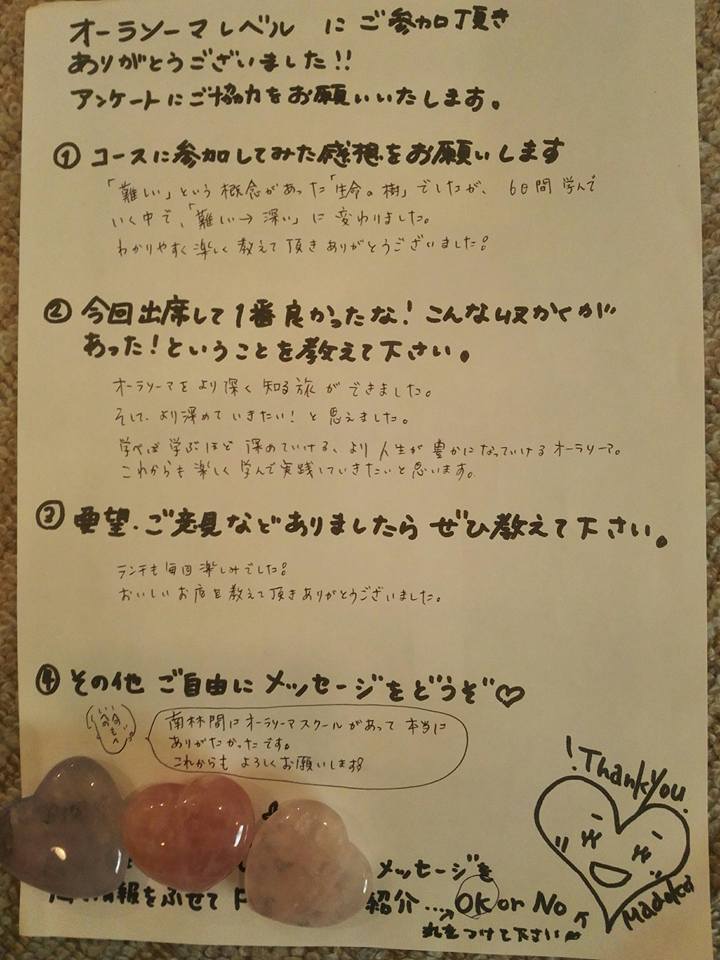 オーラソーマレベル にご参加頂き
ありがとうございました!!
アンケートにご協力をお願いいたします。
① コースに参加してみた感想をお願いします
「難しい」という概念があった「生命の樹」でしたが、6日間学んで
いく中で、「難しい→深い」に変わりました。
わかりやすく楽しく教えて頂きありがとうございました!
② 今回出席して1番良かったな!こんな収かくが
あった!ということを教えて下さい。
オーラソーマをより深く知る旅ができました。
そして、より深めていきたい!と思えました。
学べば学ぶほど深めていける、より人生が豊かになっていけるオーラソーマ。
これからも楽しく学んで実践していきたいと思います。
③ 要望・ご意見などありましたらぜひ教えて下さい。
ランチも毎回楽しみでした!
おいしいお店を教えて頂きありがとうございました。
④ その他 ご自由にメッセージをどうぞ♡
南林間にオーラソーマスクールがあって本当に
ありがたかったです。
これからもよろしくお願いします!
!Thank you.
Madoka
メッセージを
情報をふせて F 紹介...→OK or No
丸をつけて下さい